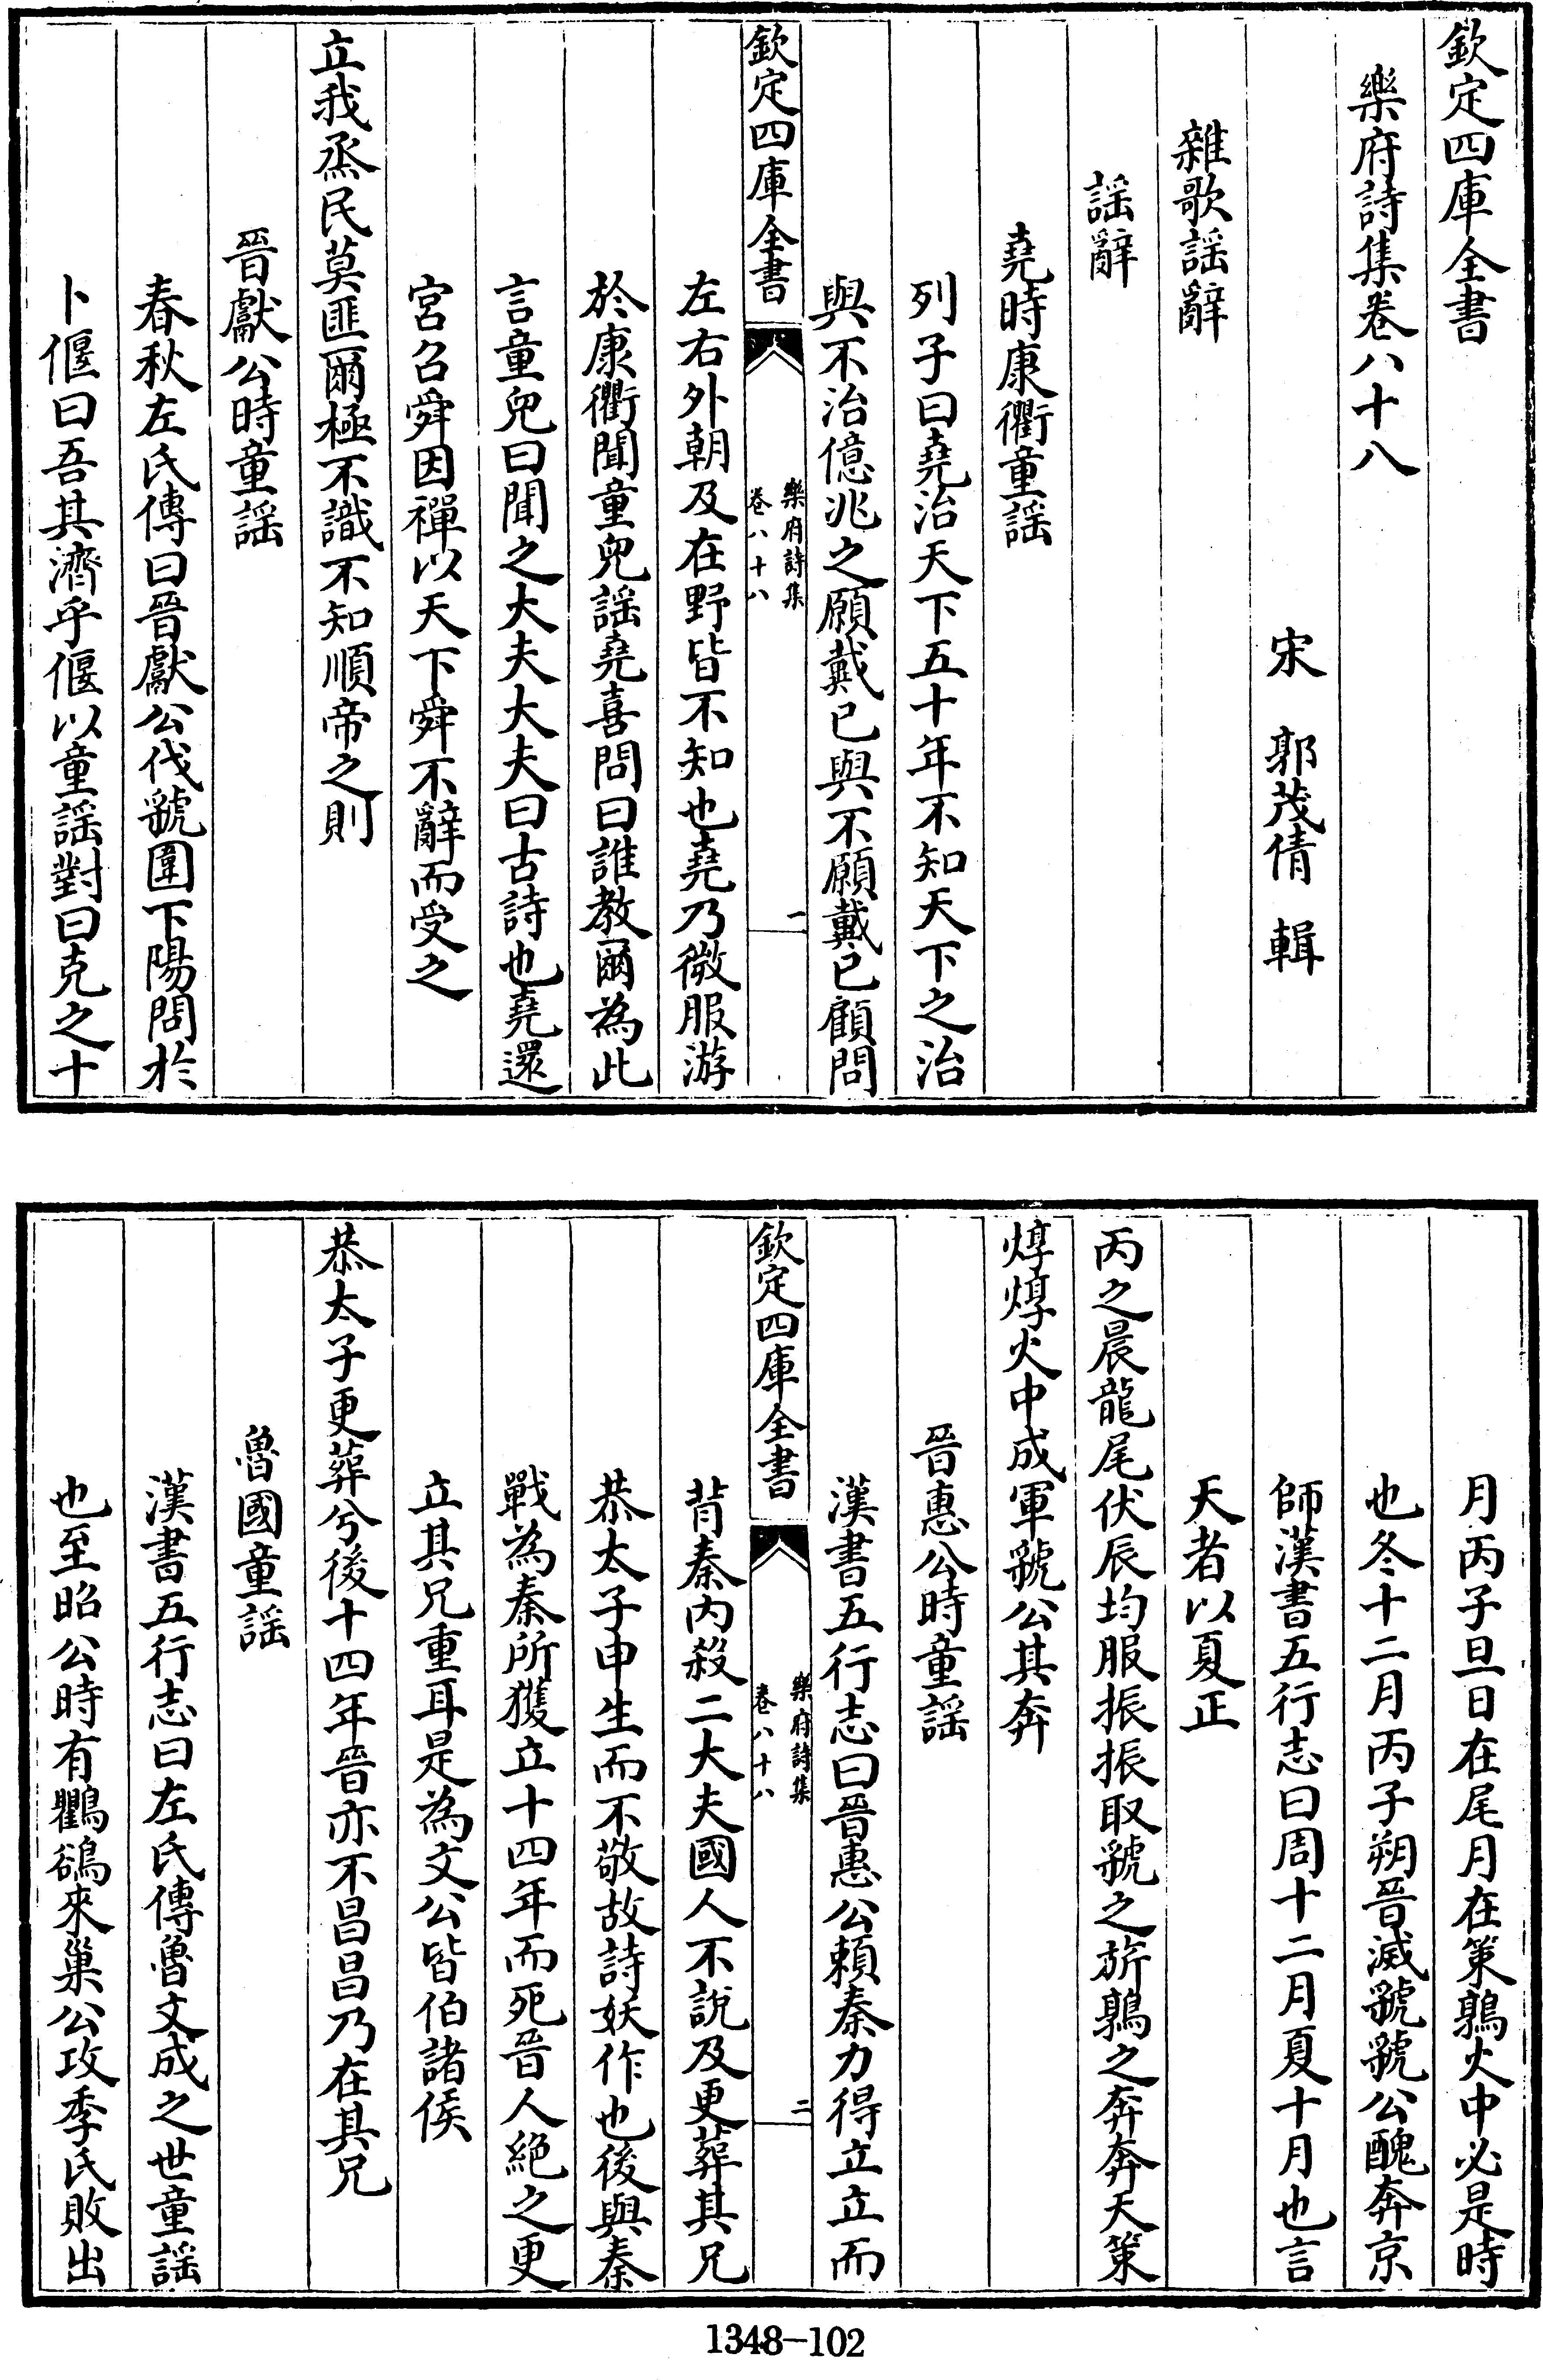 欽定四庫全書
樂府詩集卷八十八
宋 郭茂倩 輯
雜歌謡辭
謡辭
堯時康衢童謡
列子曰堯治天下五十年不知天下之治
與不治億兆之願戴已與不願戴已顧問
欽定四庫全書
樂府詩集
卷八十八
一
左右外朝及在野皆不知也堯乃微服游
於康衢聞童兒謡堯喜問曰誰教爾為此
言童兒曰聞之大夫大夫曰古詩也堯還
宮召舜因禪以天下舜不辭而受之
立我烝民莫匪爾極不識不知順帝之則
晉獻公時童謡
春秋左氏傳曰晉獻公伐虢圍下陽問於
卜偃曰吾其濟乎偃以童謡對曰克之十
月丙子旦日在尾月在策鶉火中必是時
也冬十二月丙子朔晉滅虢虢公醜奔京
師漢書五行志曰周十二月夏十月也言
天者以夏正
丙之晨龍尾伏辰均服振振取虢之旂鶉之奔奔天策
焞焞火中成軍虢公其奔
晉惠公時童謡
漢書五行志曰晉惠公頼秦力得立立而
欽定四庫全書
樂府詩集
卷八十八
二
背秦内殺二大夫國人不說及更葬其兄
恭太子申生而不敬故詩妖作也後與秦
戰為秦所獲立十四年而死晉人絶之更
立其兄重耳是為文公皆伯諸侯
恭太子更葬兮後十四年晉亦不昌昌乃在其兄
魯國童謡
漢書五行志曰左氏傳魯文成之世童謡
也至昭公時有鸜鵒來巢公攻季氏敗出
1348-102